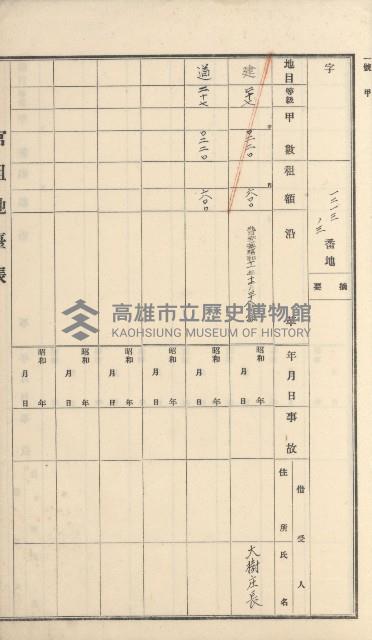 一號甲
字
一二一三
ノ三
番地
摘要
地目
等級
甲數
租額
沿革
年月日
事故
借受人
住所
氏名
建
甲
〇二二〇
円
六〇〇
大樹庄長
道
二十七
〇二二〇
六〇〇
昭和 年 月 日
昭和 年 月 日
昭和 年 月 日
昭和 年 月 日
昭和 年 月 日
昭和 年 月 日
官租地臺帳
高雄市立歷史博物館
KAOHSIUNG MUSEUM OF HISTORY